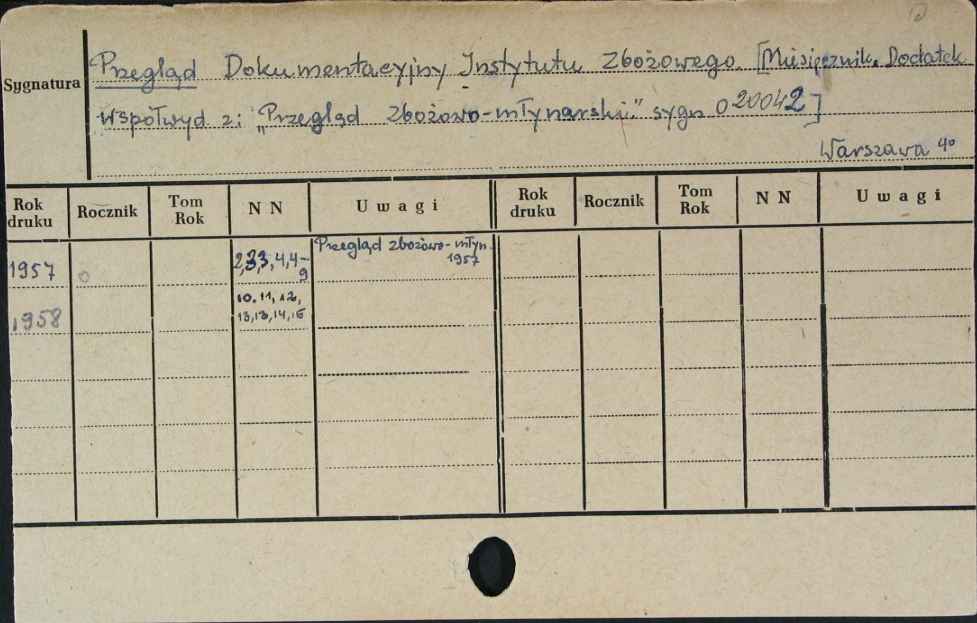 Sygnatura
Przegląd Dokumentacyjny Instytutu Zbożowego. [Miesięcznik. Dodatek
współwyd z: "Przegląd zbożowo-młynarski" sygn 020042]
Warszawa 4º
Rok druku Rocznik Tom Rok N N Uwagi Rok druku Rocznik Tom Rok N N Uwagi
1957 0 2,3,3,4,4-9 Przegląd zbożowo-młyn. 1957
1958 10.11,12, 13,13,14,15